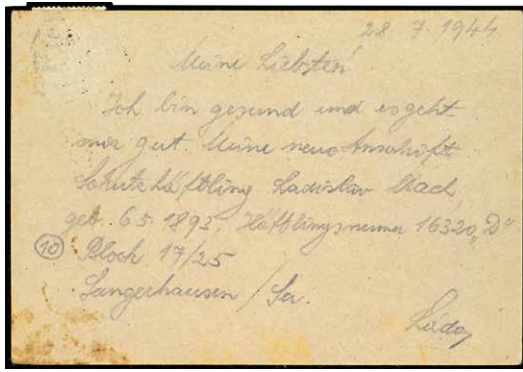 28 7. 1944
Meine Liebsten
Ich bin gesund und es geht
mir gut. Meine neue Anschrift
Schutzhäftling Ladislav Mach
geb. 6 5. 1893. Häftlingsnummer 16320 „D“
10 Block 17/25
Sangerhausen / Sa.